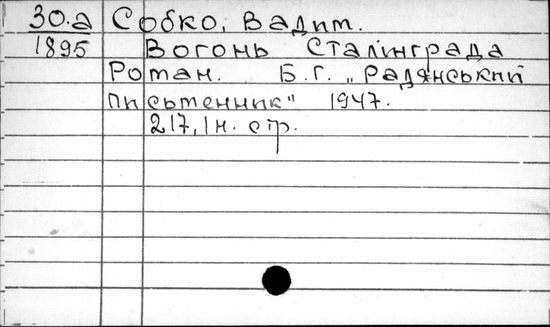 30.а Собко, Вадим.
1895 Вогонь Сталінграда
Роман. Б.г. „Радянський
письменник" 1947.
217, 1 н. стр.